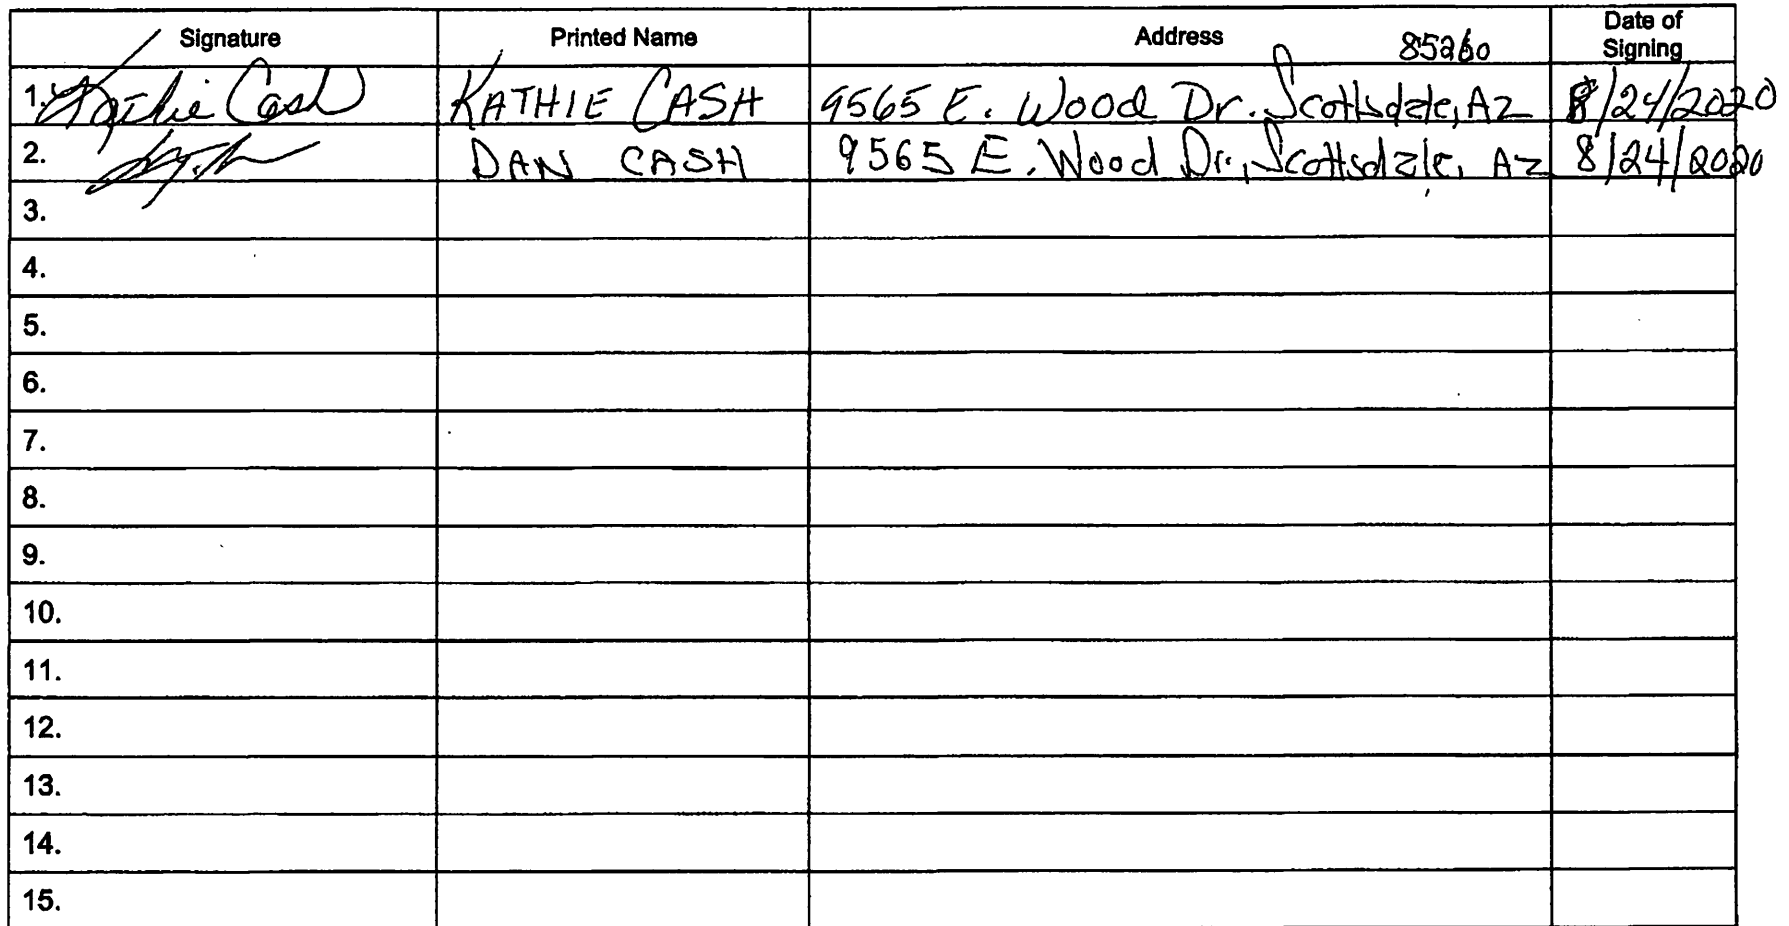 Signature Printed Name Address 85260 Date of Signing
1. Kathie Cash KATHIE CASH 9565 E. Wood Dr. Scottsdale, AZ 8/24/2020
2. DAN CASH 9565 E. Wood Dr., Scottsdale, AZ 8/24/2020
3.
4.
5.
6.
7.
8.
9.
10.
11.
12.
13.
14.
15.